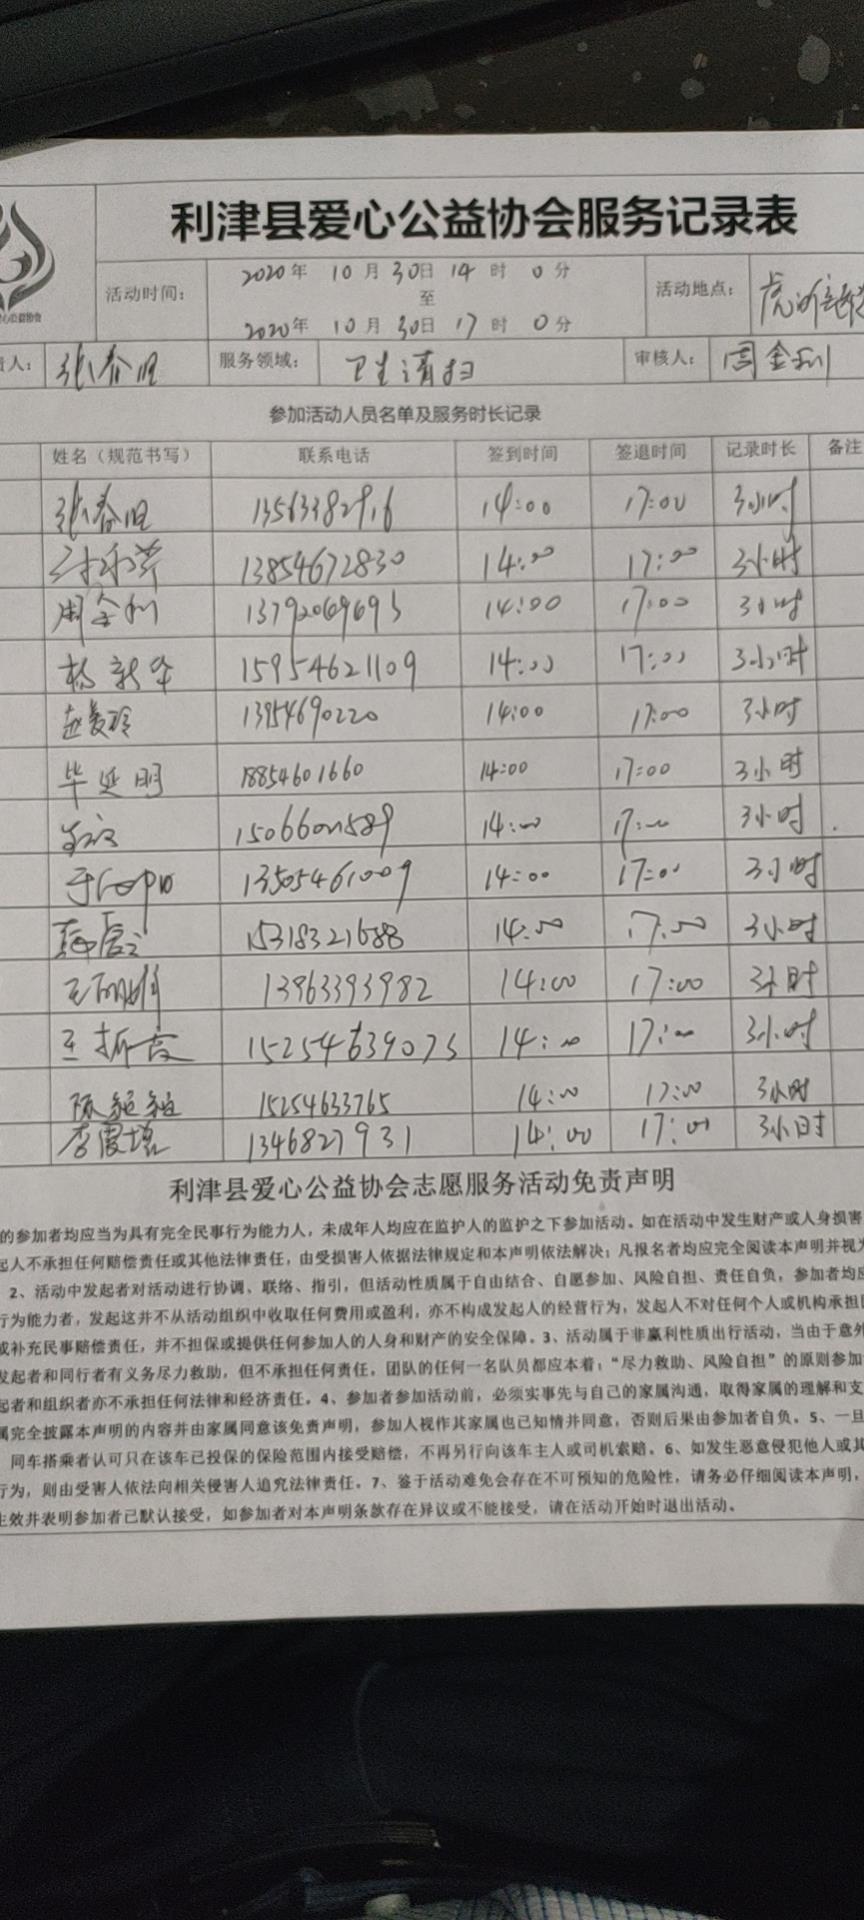 利津县爱心公益协会服务记录表
活动时间：
2020年 10月 30日 14时 0分
至
2020年 10月 30日 17时 0分
活动地点：
心公益协会
责人： 张春旺 服务领域： 卫生清扫 审核人： 周金利
参加活动人员名单及服务时长记录
姓名（规范书写） 联系电话 签到时间 签退时间 记录时长 备注
张春旺 13563382916 14:00 17:00 3小时
13854672830 14:00 17:00 3小时
周金利 13792069693 14:00 17:00 3小时
杨新华 15954621109 14:00 17:00 3小时
赵爱玲 13954690220 14:00 17:00 3小时
毕延明 18854601660 14:00 17:00 3小时
14:00 17:00 3小时
13505461009 14:00 17:00 3小时
15318321688 14:00 17:00 3小时
13963393982 14:00 17:00 3小时
15254639073 14:00 17:00 3小时
陈 15254633765 14:00 17:00 3小时
李霞 1346827931 14:00 17:00 3小时
利津县爱心公益协会志愿服务活动免责声明
的参加者均应当为具有完全民事行为能力人，未成年人均应在监护人的监护之下参加活动。如在活动中发生财产或人身损害
起人不承担任何赔偿责任或其他法律责任，由受损害人依据法律规定和本声明依法解决；凡报名者均应完全阅读本声明并视为
2、活动中发起者对活动进行协调、联络、指引，但活动性质属于自由结合、自愿参加、风险自担、责任自负，参加者均应
行为能力者，发起这并不从活动组织中收取任何费用或盈利，亦不构成发起人的经营行为，发起人不对任何个人或机构承担
或补充民事赔偿责任，并不担保或提供任何参加人的人身和财产的安全保障。3、活动属于非赢利性质出行活动，当由于意外
发起者和同行者有义务尽力救助，但不承担任何责任。团队的任何一名队员都应本着：“尽力救助、风险自担”的原则参加
起者和组织者亦不承担任何法律和经济责任。4、参加者参加活动前，必须实事先与自己的家属沟通，取得家属的理解和支
属完全披露本声明的内容并由家属同意该免责声明，参加人视作其家属也已知情并同意，否则后果由参加者自负。5、一旦
同车搭乘者认可只在该车已投保的保险范围内接受赔偿，不再另行向该车主人或司机索赔。6、如发生恶意侵犯他人或其
行为，则由受害人依法向相关侵害人追究法律责任。7、鉴于活动难免会存在不可预知的危险性，请务必仔细阅读本声明，
生效并表明参加者已默认接受，如参加者对本声明条款存在异议或不能接受，请在活动开始时退出活动。